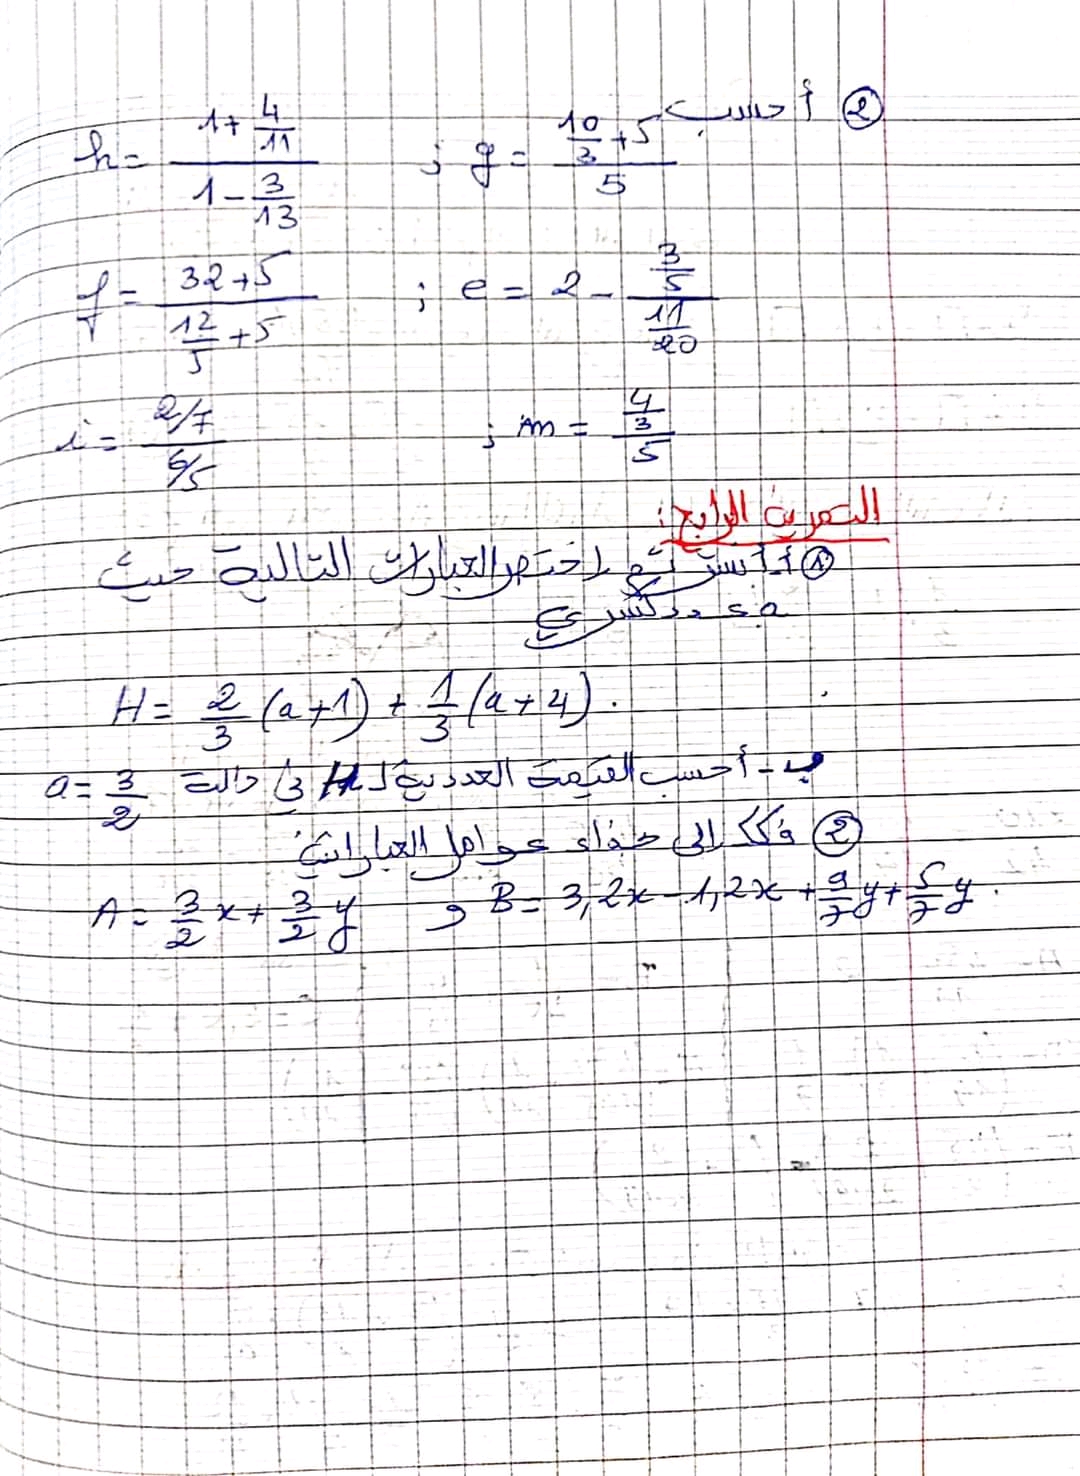 ② أحسب
g = (10/3 + 5)/5 ; h = (1 + 4/11)/(1 - 3/13)
e = 2 - (3/5)/(11/20) ; f = (32 + 5)/(12/5 + 5)
m = (4/3)/5 ; i = (2/7)/(6/5)
التمرين الرابع:
① أ- أنشر ثم إختصر العبارات التالية حيث
a عدد كسري
H = 2/3 (a+1) + 1/3 (a+4).
ب- أحسب القيمة العددية لـ H في حالة a = 3/2
② فكك إلى جذاء عوامل العبارات:
A = 3/2 x + 3/2 y و B = 3,2x - 1,2x + 9/7 y + 5/7 y.